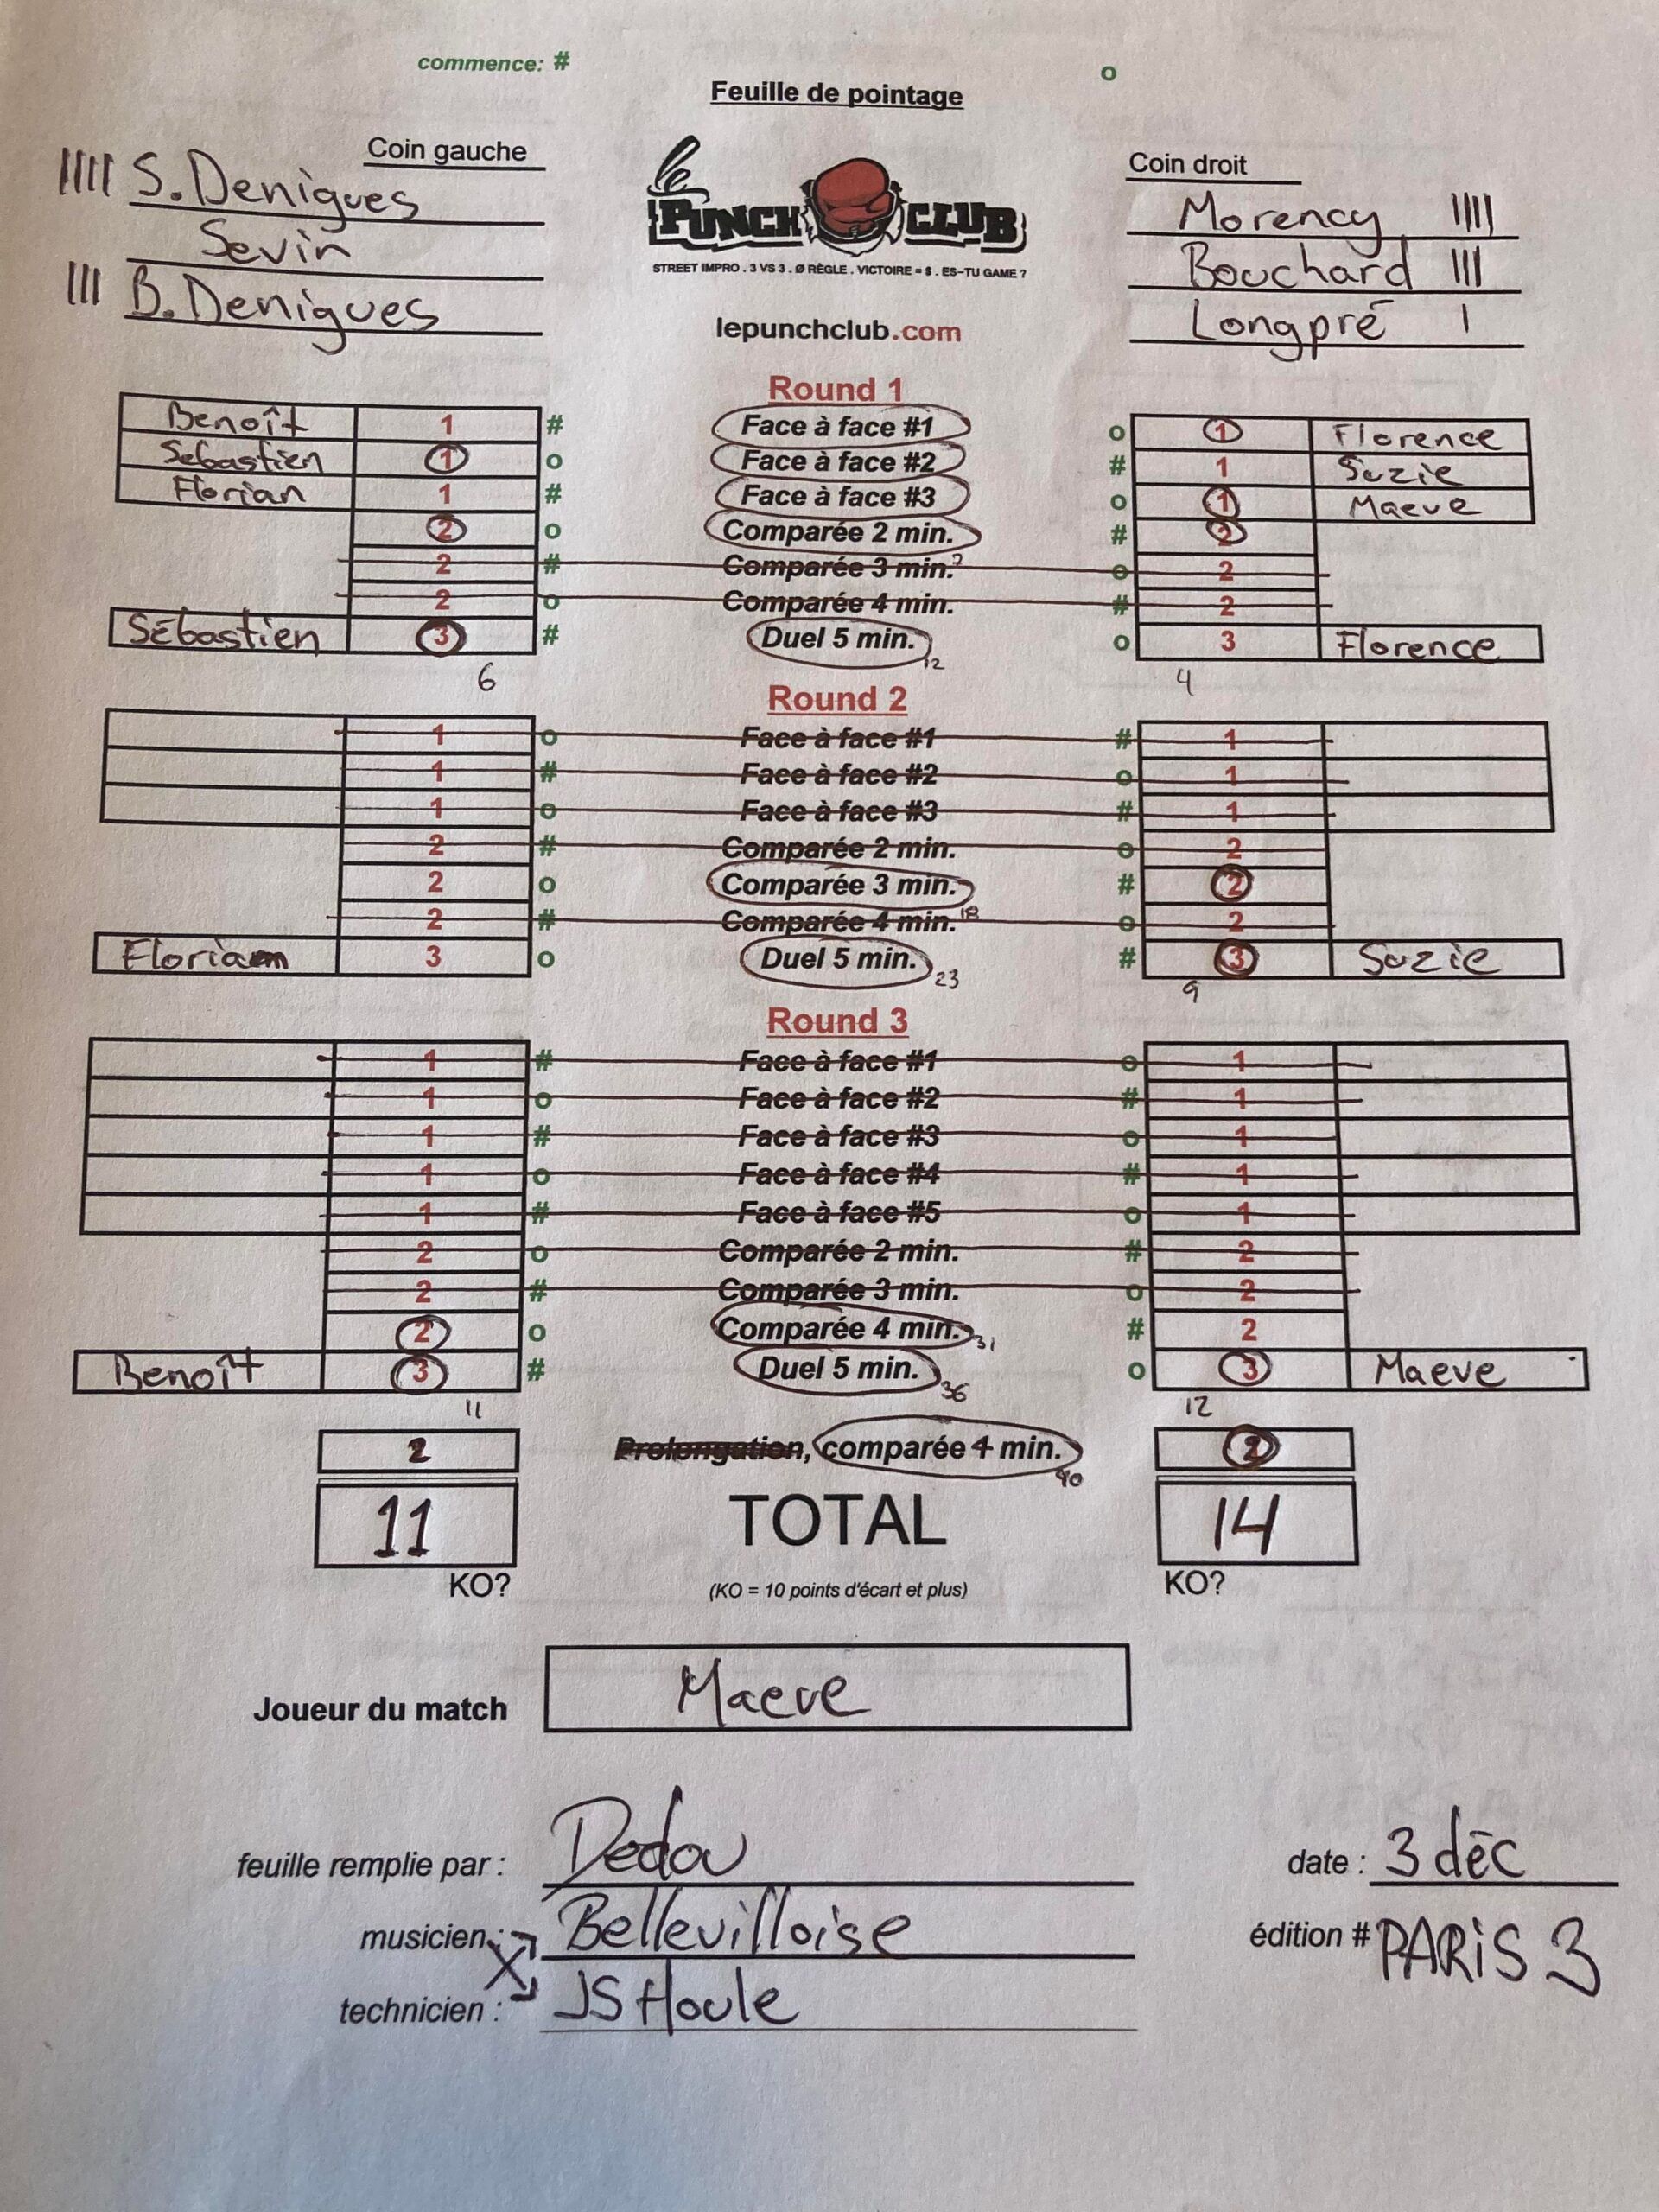 commence: # o
Feuille de pointage
Coin gauche
Coin droit
IIII S. Denigues
Sevin
III B. Denigues
le PUNCH CLUB
STREET IMPRO . 3 VS 3 . Ø RÈGLE . VICTOIRE = $ . ES-TU GAME ?
lepunchclub.com
Morency IIII
Bouchard III
Longpré I
Round 1
Benoît 1 # Face à face #1 o 1 Florence
Sebastien 1 o Face à face #2 # 1 Suzie
Florian 1 # Face à face #3 o 1 Maeve
2 o Comparée 2 min. # 2
2 # Comparée 3 min. 7 o 2
2 o Comparée 4 min. # 2
Sébastien 3 # Duel 5 min. 12 o 3 Florence
6 4
Round 2
1 o Face à face #1 # 1
1 # Face à face #2 o 1
1 o Face à face #3 # 1
2 # Comparée 2 min. o 2
2 o Comparée 3 min. # 2
2 # Comparée 4 min. 18 o 2
Florian 3 o Duel 5 min. 23 # 3 Suzie
9
Round 3
1 # Face à face #1 o 1
1 o Face à face #2 # 1
1 # Face à face #3 o 1
1 o Face à face #4 # 1
1 # Face à face #5 o 1
2 o Comparée 2 min. # 2
2 # Comparée 3 min. o 2
2 o Comparée 4 min. 31 # 2
Benoît 3 # Duel 5 min. 36 o 3 Maeve
11 12
2 Prolongation, comparée 4 min. 40 2
11 TOTAL 14
KO? (KO = 10 points d'écart et plus) KO?
Joueur du match Maeve
feuille remplie par : Dedou
date : 3 déc
musicien : Bellevilloise
édition # PARiS 3
technicien : JS Houle